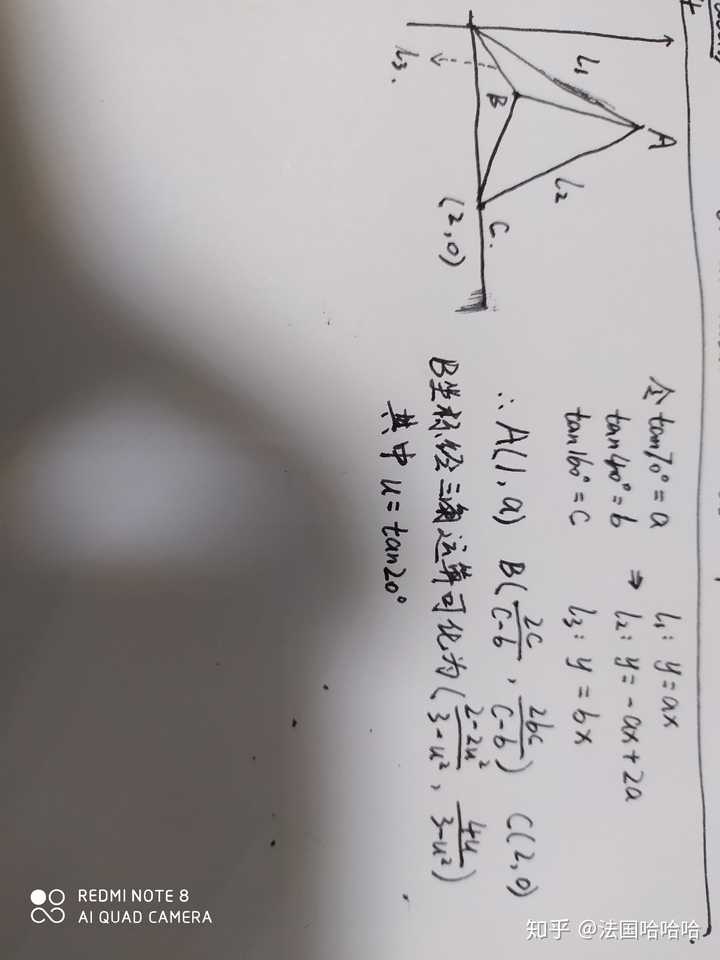 A
l₁
l₂
B
l₃.
C.
(2,0)
令tan70°=a
tan40°=b
tan160°=c
⇒ l₁: y=ax
l₂: y=-ax+2a
l₃: y=bx
∴ A(1,a) B(2c/(c-b), 2bc/(c-b)) C(2,0)
B坐标经三角运算可化为((2-2u²)/(3-u²), 4u/(3-u²))
其中 u=tan20°
REDMI NOTE 8
AI QUAD CAMERA
知乎 @法国哈哈哈